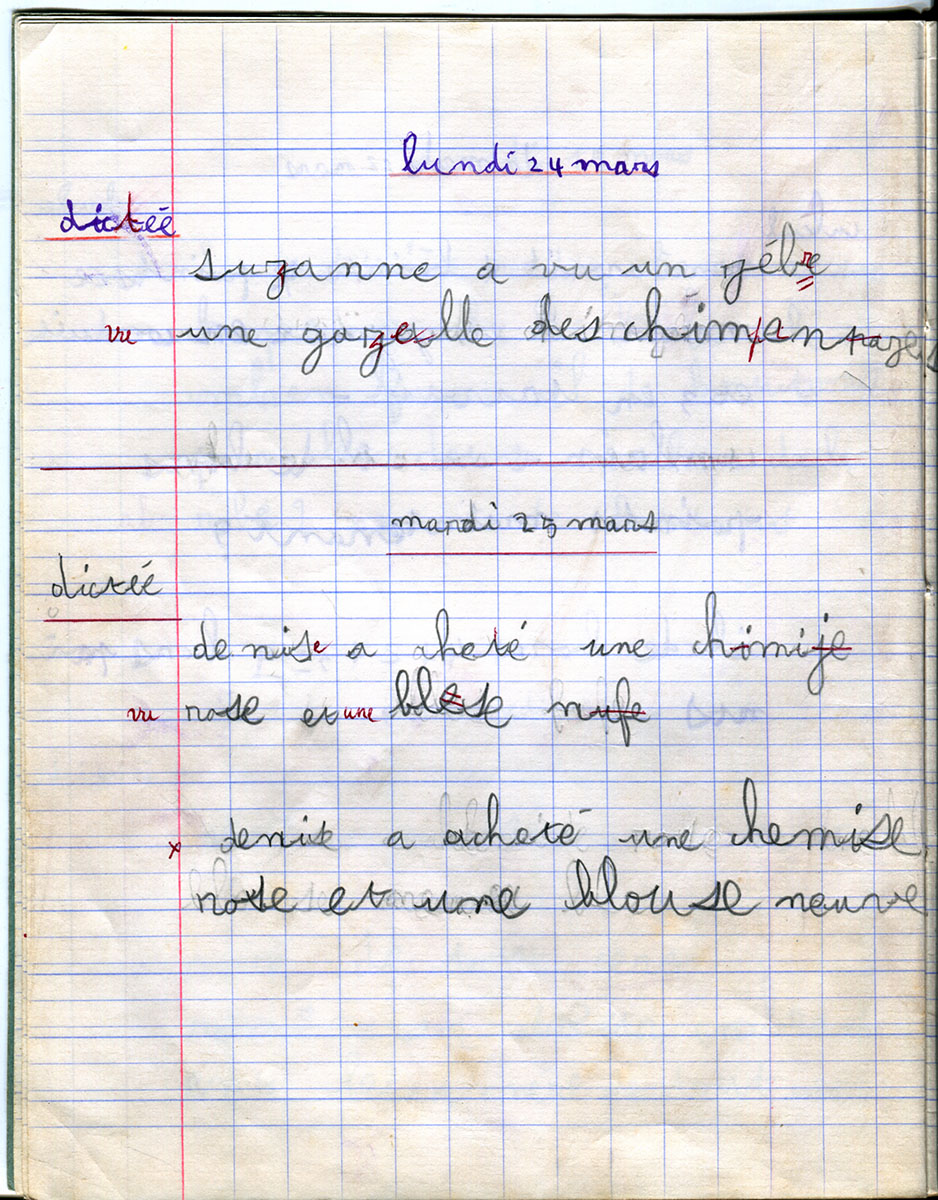 lundi 24 mars
dictée
suzanne a vu un zébre
vu une gazelle des chimpanpazes
mardi 25 mars
dictée
denise a aheté une chimije
vu rose et une blese nufe
x denise a acheté une chemise
rose et une blouse neuve